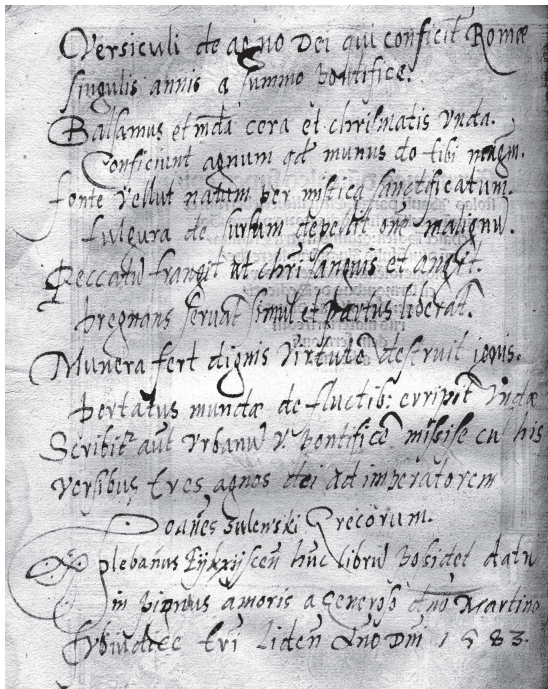 Versiculi de agno Dei qui conficit Romæ
singulis annis a summo Pontifice.
Balsamus et mda cera et chrismatis vnda.
Conficiunt agnum qd munus do tibi magm.
fonte vellut natum per mistica sanctificatum.
fulgura de sursum depellit one malignu.
Peccatu frangit ut chri sanguis et angit.
pregnans servat simul et partus liberat.
Munera fert dignis virtute destruit ignis.
portatus mundæ de fluctib: erripit vndæ
Scribit aut Vrbanu V. Pontifice misisse cu his
versibus tres agnos dei ad imperatorem
Grecorum.
Joanes Zulenski
plebanus huc libru posidet datu
in pignus amoris a Generoso dno Martino
Anno Dni 1583.